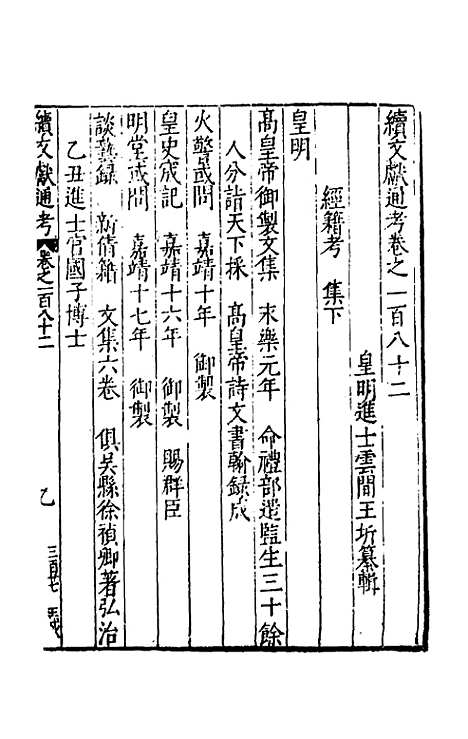 續文獻通考卷之一百八十二
皇明進士雲間王圻纂輯
經籍考 集下
皇明
高皇帝御製文集 永樂元年 命禮部選監生三十餘
人分詣天下採 高皇帝詩文書翰録成
火警或問 嘉靖十年 御製
皇史宬記 嘉靖十六年 御製 賜群臣
明堂或問 嘉靖十七年 御製
談藝録 新倩籍 文集六卷 俱吳縣徐禎卿著弘治
乙丑進士官國子博士
續文獻通考 卷之一百八十二
乙